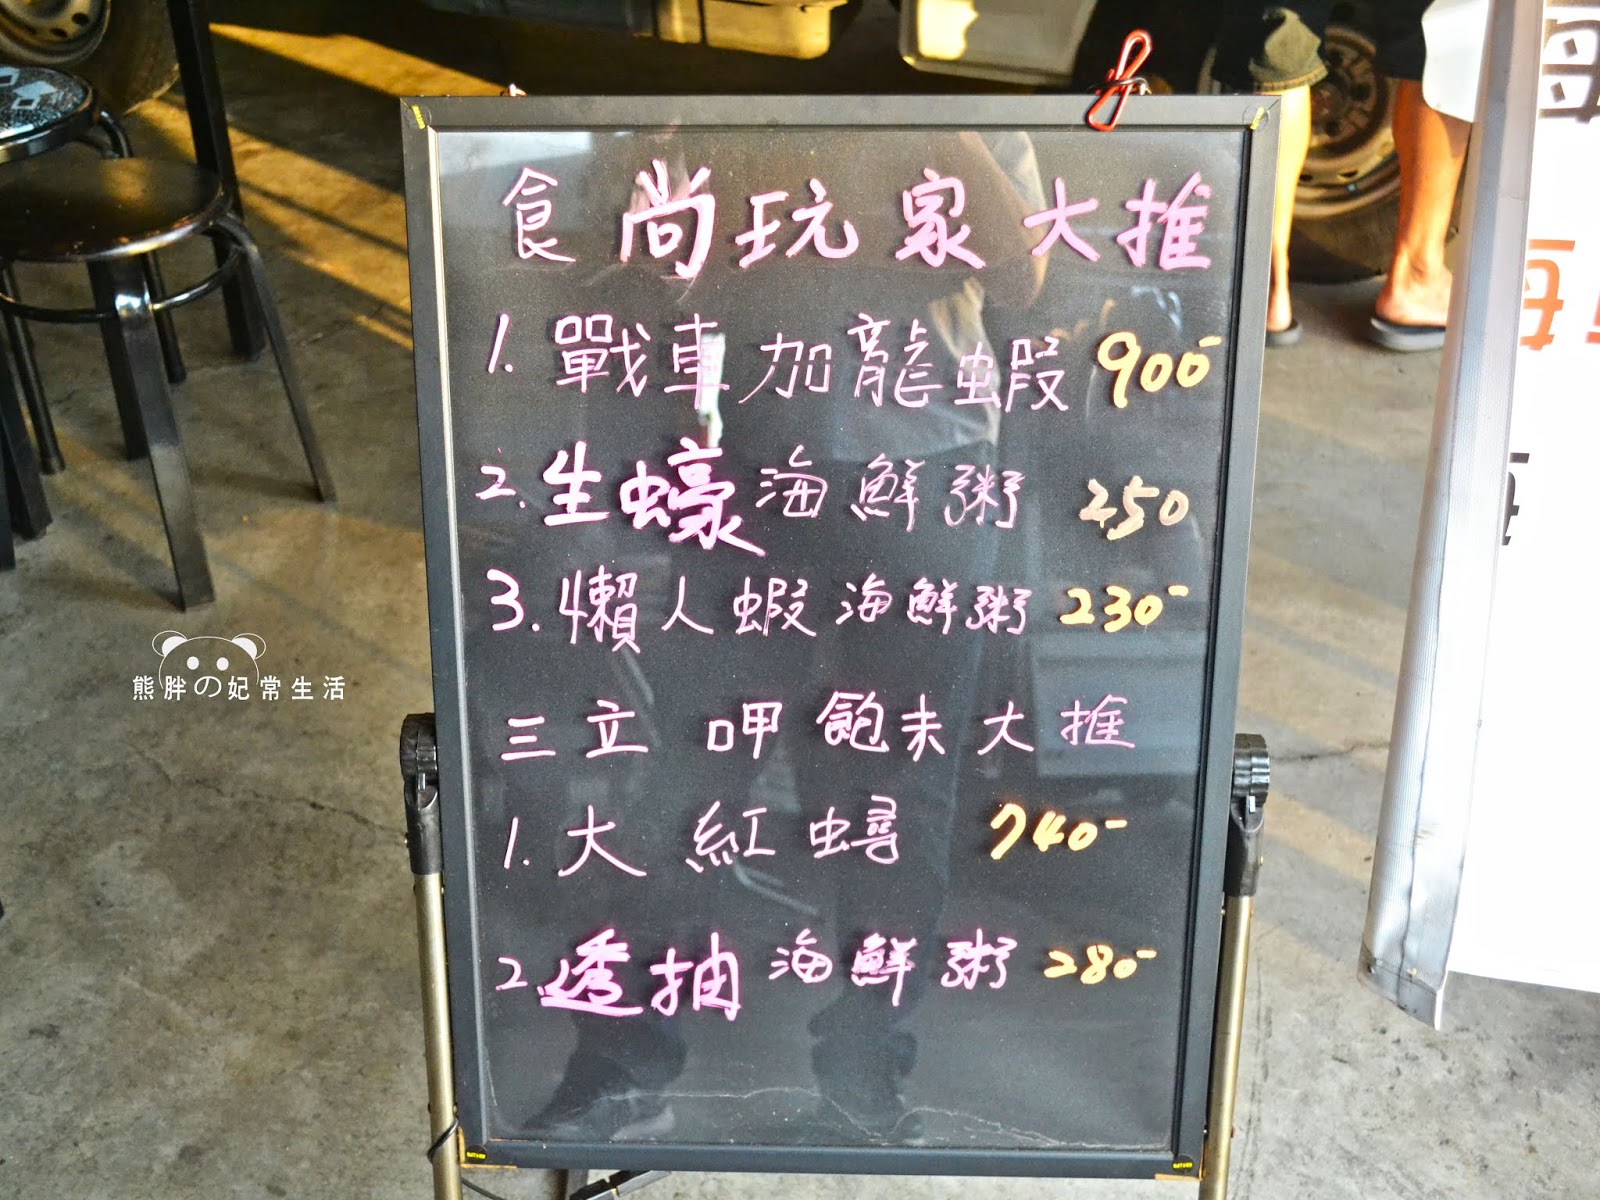 食尚玩家大推
1. 戰車加龍蝦 900-
2. 生蠔海鮮粥 250
3. 懶人蝦海鮮粥 230-
三立 呷飽未大推
1. 大紅蟳 740-
2. 透抽海鮮粥 280-
熊胖の妃常生活